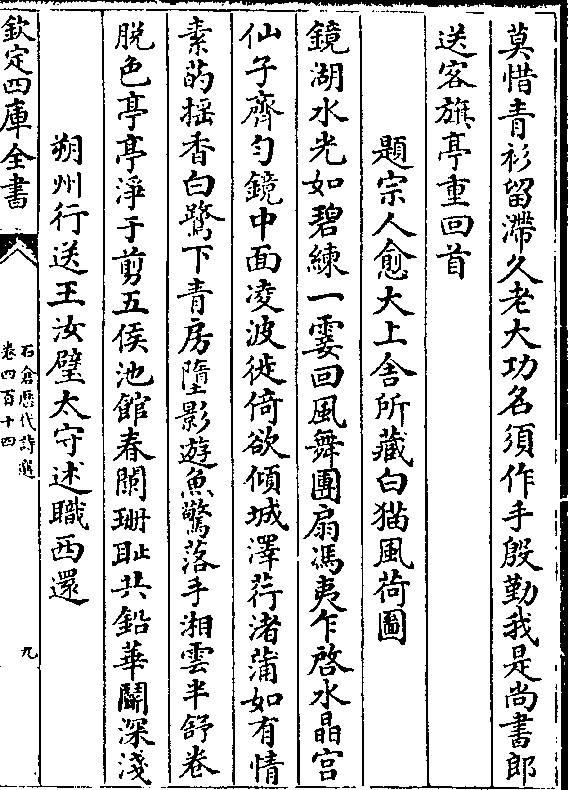 莫惜青衫留滯久老大功名須作手殷勤我是尚書郎
送客旗亭重回首
題宗人愈大上舍所藏白猫風荷圖
鏡湖水光如碧練一霎回風舞團扇馮夷乍啓水晶宫
仙子齊勻鏡中面凌波徙倚欲傾城澤荇渚蒲如有情
素菂揺香白鷺下青房墮影遊魚驚落手湘雲半舒卷
脱色亭亭淨于剪五侯池館春闌珊恥共鉛華鬭深淺
朔州行送王汝璧太守述職西還
欽定四庫全書
石倉歴代詩選
卷四百十四
九